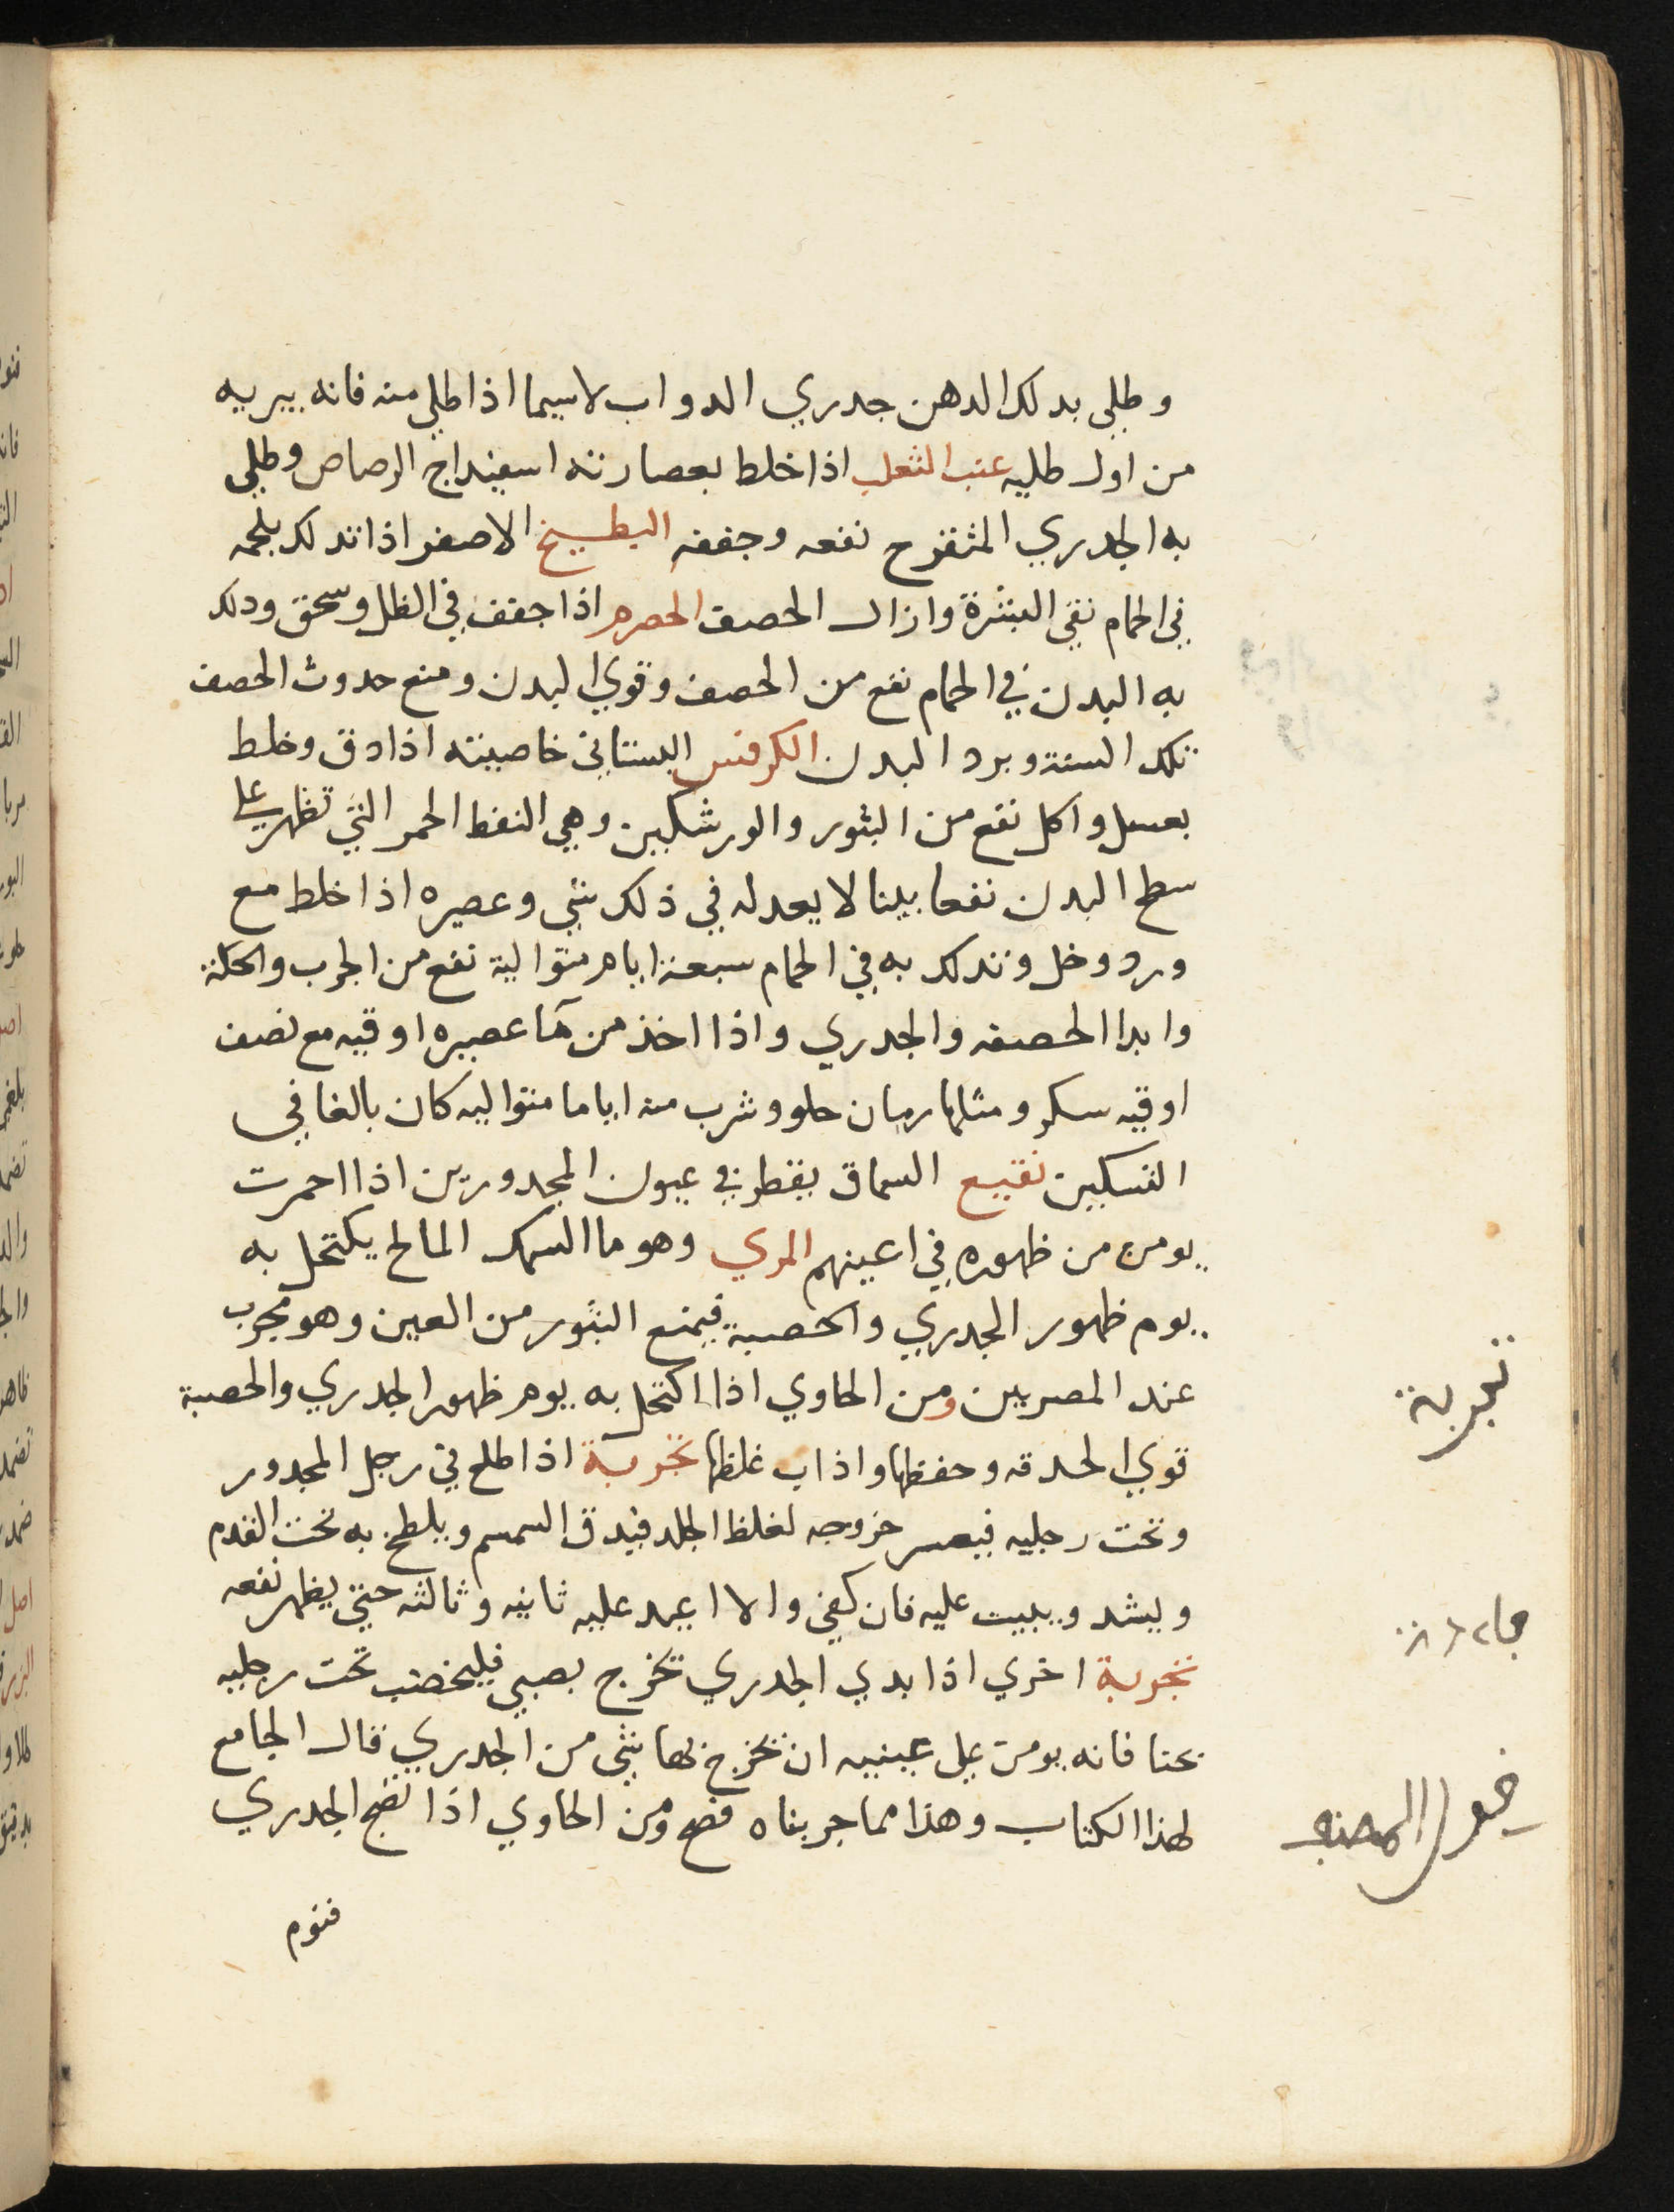 وطلي بدلك الدهن جدري الدواب لاسيما اذا طلي منه فانه يبريه
من اول طليه عنب الثعلب اذا خلط بعصارته اسفيداج الرصاص وطلي
به الجدري المثقرح نفعه وجففه البطيخ الاصفر اذا تدلك بلحمه
في الحمام نقي البشرة وازال الحصف الحصرم اذا جفف في الظل وسحق ودلك
به البدن في الحمام نفع من الحصف وقوي البدن ومنع حدوث الحصف
تلك السنة وبرد البدن الكرفس البستاني خاصيته اذا دق وخلط
بعسل واكل نفع من البثور والورشكين وهي النقط الحمر التي تظهر علي
سطح البدن نفعا بينا لا يعدله في ذلك شي وعصيره اذا خلط مع
ورد وخل وتدلك به في الحمام سبعة ايام متوالية نفع من الجرب والحكة
وابرا الحصف والجدري واذا اخذ من مآ عصيره اوقيه مع نصف
اوقيه سكر ومثلها رمان حلو وشرب منه اياما متواليه كان بالغا في
التسكين نقيع السماق يقطر في عيون المجدورين اذا احمرت
يومن من ظهوره في اعينهم المري وهو ما السمك المالح يكتحل به
يوم ظهور الجدري والحصبة فيمنع البثور من العين وهو مجرب
عند المصريين ومن الحاوي اذا اكتحل به يوم ظهور الجدري والحصبة
قوي الحدقه وحفظها واذاب غلظها تجربة اذا طلع في رجل المجدور
وتحت رجليه فيعسر خروجه لغلظ الجلد فيدق السمسم ويلطخ به تحت القدم
ويشد ويبيت عليه فان كفي والا اعيد عليه ثانيه وثالثه حتي يظهر نفعه
تجربة اخري اذا بدي الجدري تخرج بصبي فليخضب تحت رجليه
بحنا فانه يومن علي عينيه ان تخرج بها شي من الجدري قال الجامع
لهذا الكتاب وهذا مما جربناه فصح ومن الحاوي اذا نضج الجدري
فنوم
تجربة
المصنف